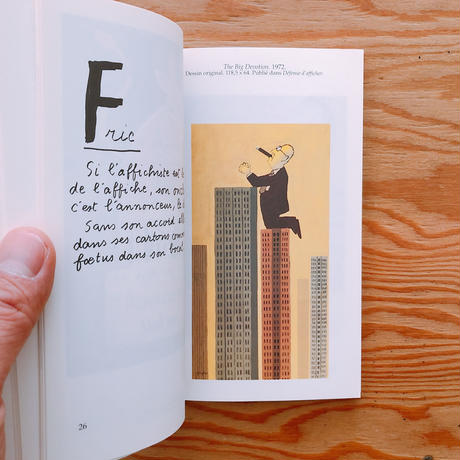 Fric
Si l'affichiste est
de l'affiche, son
c'est l'annonceur,
Sans son accord
dans ses cartons
fœtus dans son bocal
26
The Big Devotion. 1972.
Dessin original. 118,5 x 64. Publié dans Défense d'afficher.